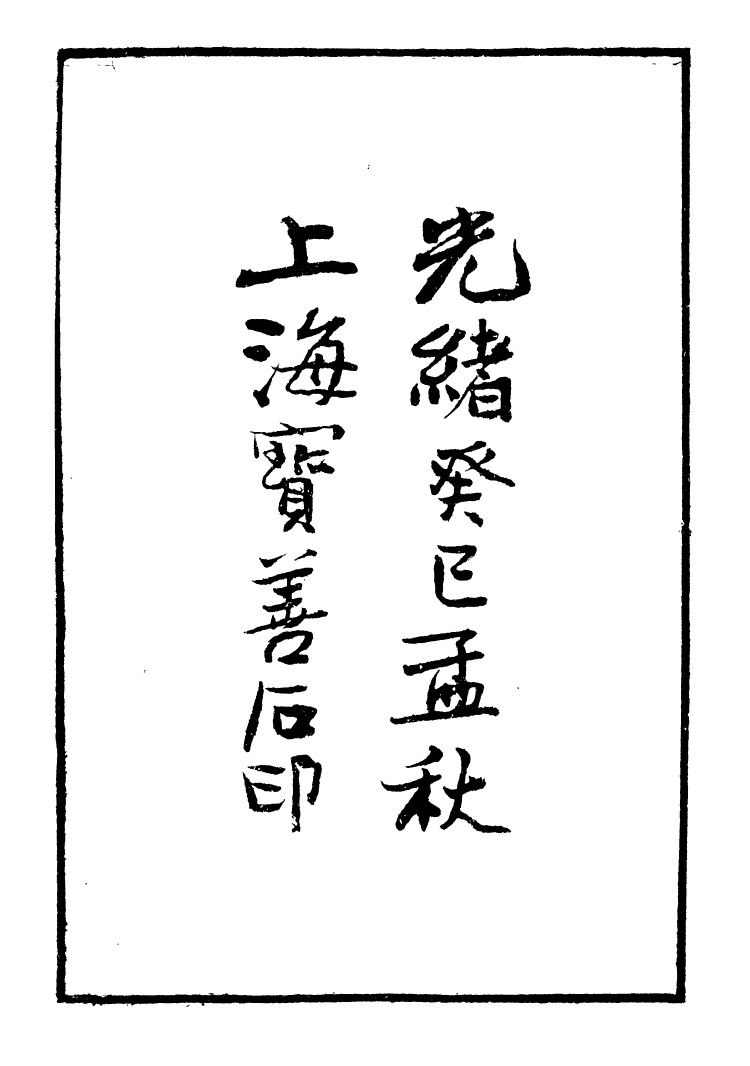 光緒癸巳孟秋
上海寶善石印